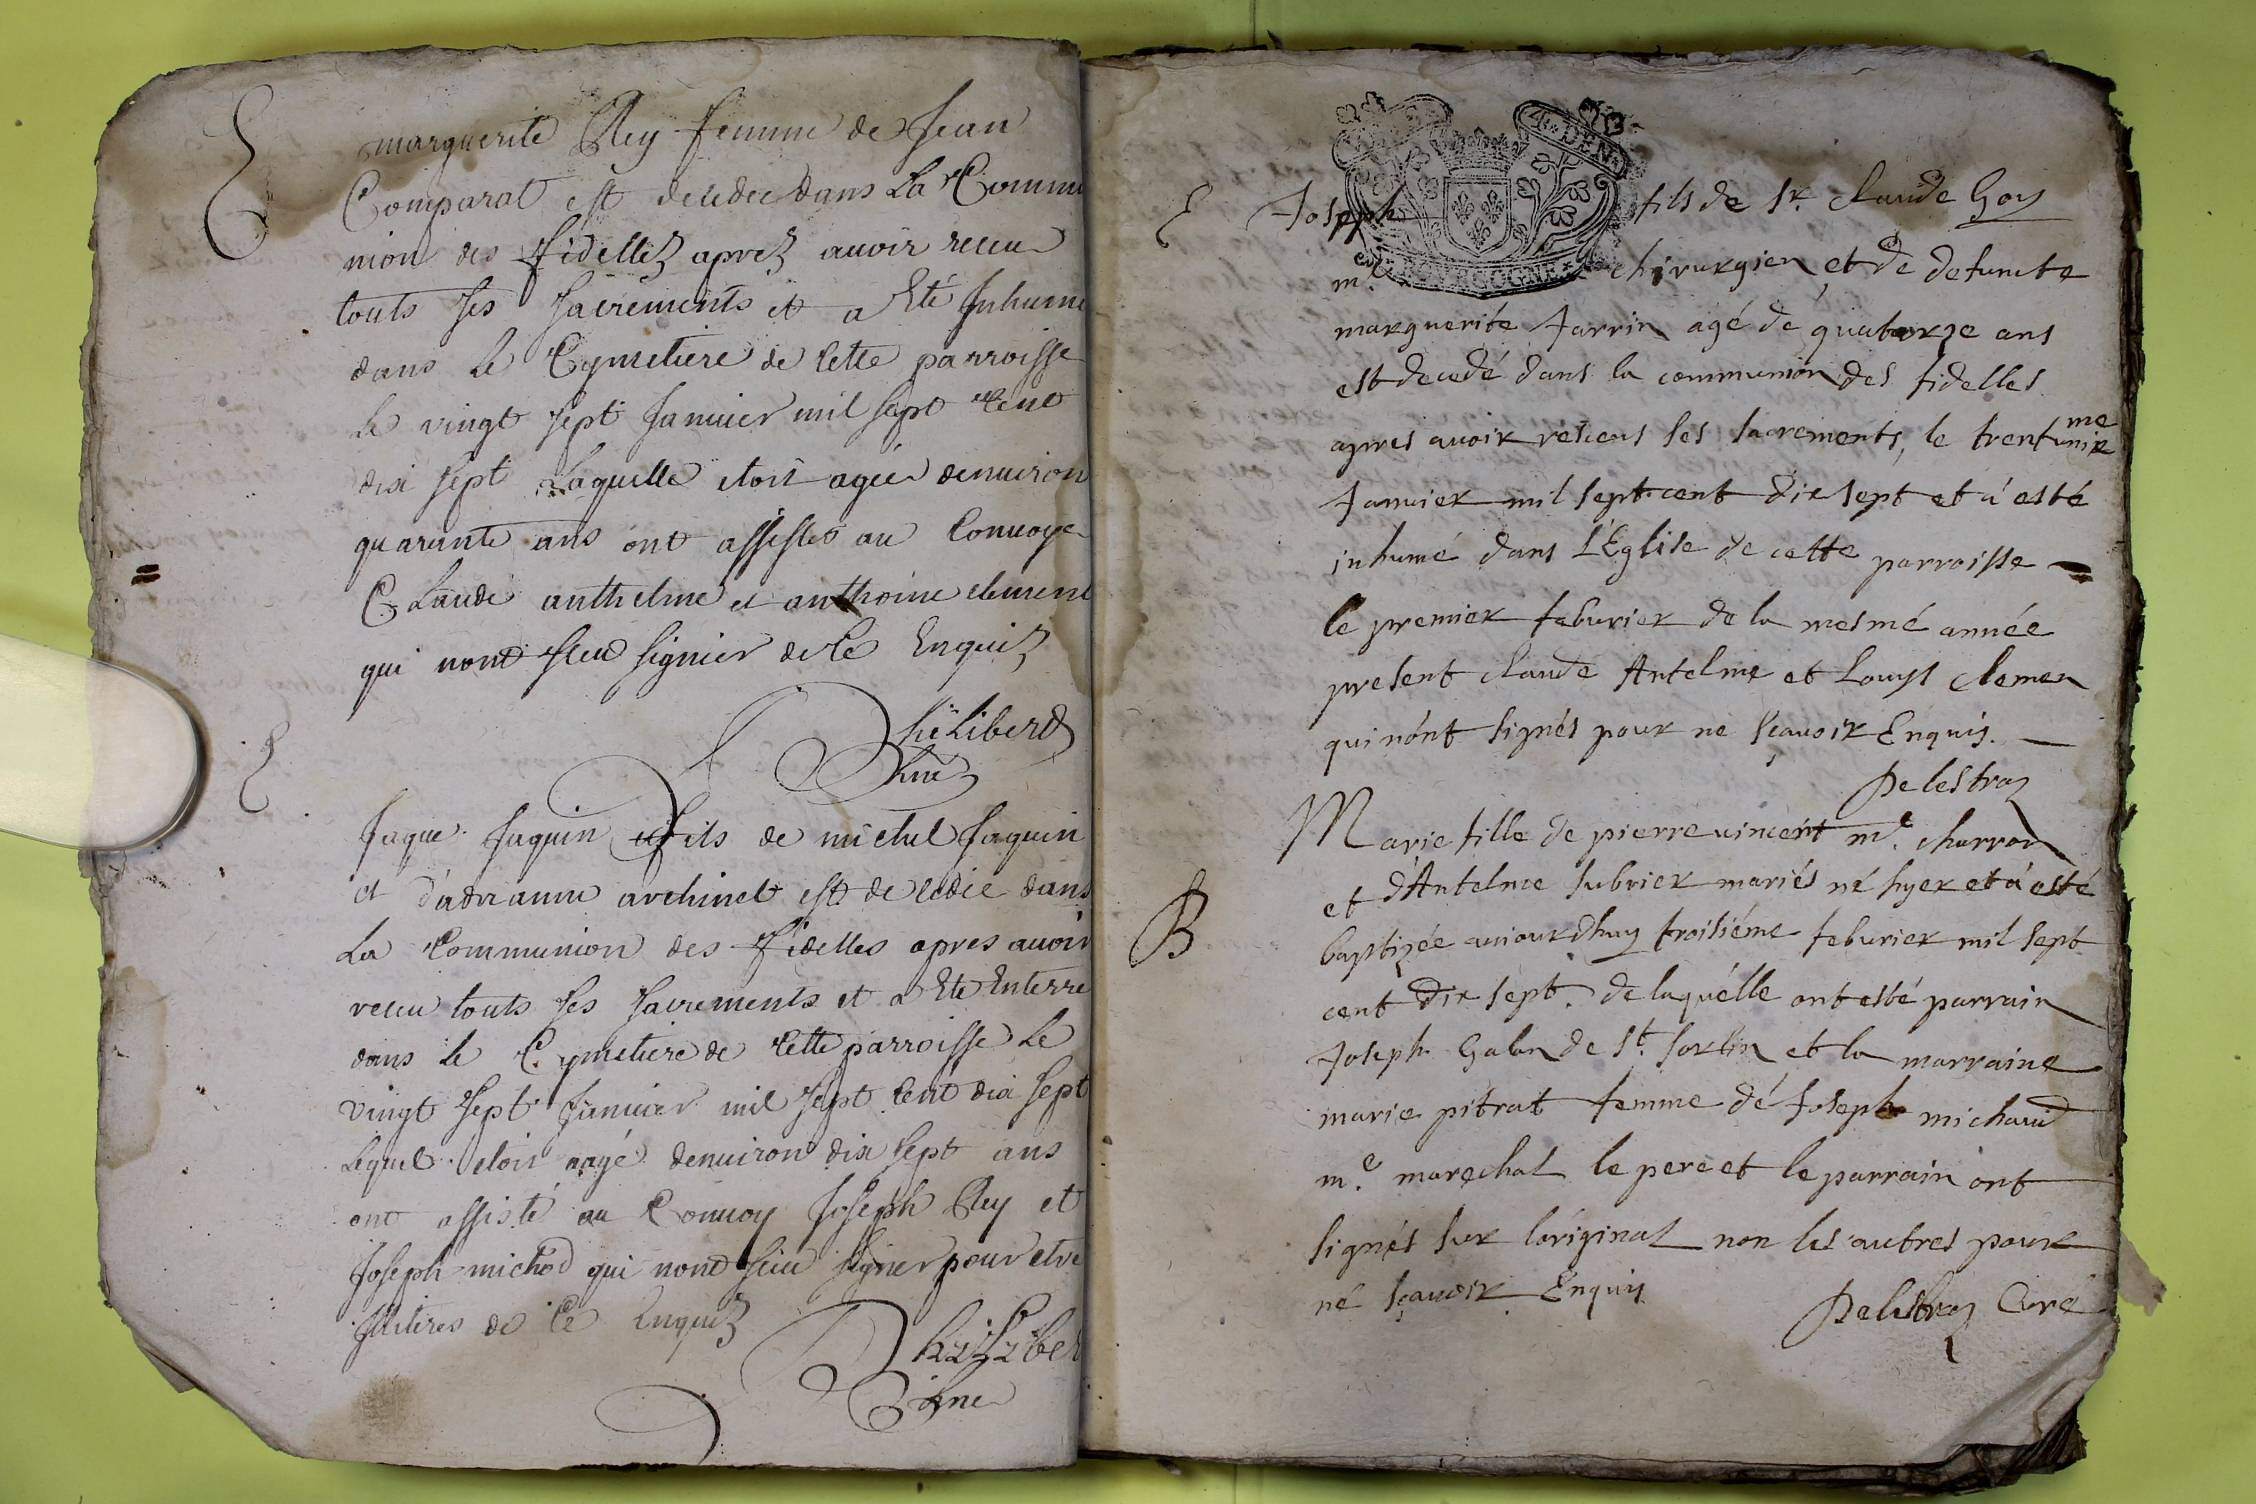 E
marguerite Rey femme de Jean
Comparat est decedee dans La Commu
nion des fidellez aprez auoir receu
touts ses sacrements et a Eté Inhumé
dans Le Cymetiere de cette parroisse
Le vingt sept Januier mil sept cent
dix sept Laquelle etoit agée denuiron
quarante ans ont assistés au Conuoye
Claude anthelme et anthoine clement
qui nont sceu signier de ce Enquiz
E
Jaque Jaquin fils de michel Jaquin
et d'adrianne archinet est decedée dans
La Communion des fidelles apres auoir
receu touts ses sacrements et a Eté Enterre
dans le Cymetiere de cette parroisse Le
vingt sept Januier mil sept cent dix sept
Lequel etoit agé denuiron dix sept ans
ont assisté au Conuoy Joseph Rey et
Joseph michod qui nont sceu signer pour etre
de ce Enquiz
4 DEN
BOURGOGNE
E
Joseph fils de Sr. claude Goy
me. chirurgien et de defuncte
marguerite Jarrin agé de quatorze ans
est decedé dans la communion des fidelles
apres auoir receus ses sacrements, le trentunie me
Januier mil sept cent dix sept et a esté
inhumé dans L'Eglise de cette parroisse
le premier feburier de la mesme année
present claude Antelme et Louys clemen
qui nónt signés pour ne sçauoir Enquis.
Delestraz
B
Marie fille de pierre uincent me. charron
et d'Antelme subrier mariés né hyer et a esté
baptizée auiourdhuy troisiéme feburier mil sept
cent dix sept. de laquélle ont esté parrain
Joseph Galan de St. sorlin et la marraine
marie pitrat femme dé Joseph michaud
me. marechal le pere et le parrain ont
signés sur l'original non les autres pour
né sçauoir Enquis
Delestraz Curé